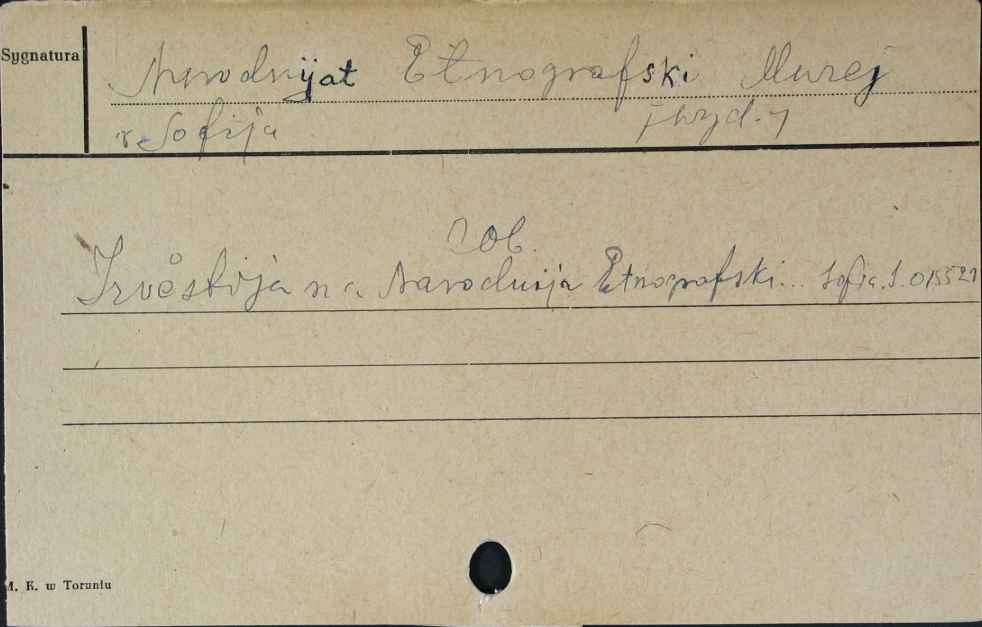 Sygnatura
Narodnijat Etnografski Muzej
v Sofija [wyd.]
Zob.
Izvěstija na Narodnija Etnografski... Sofia. S. 015521
M. K. w Toruniu